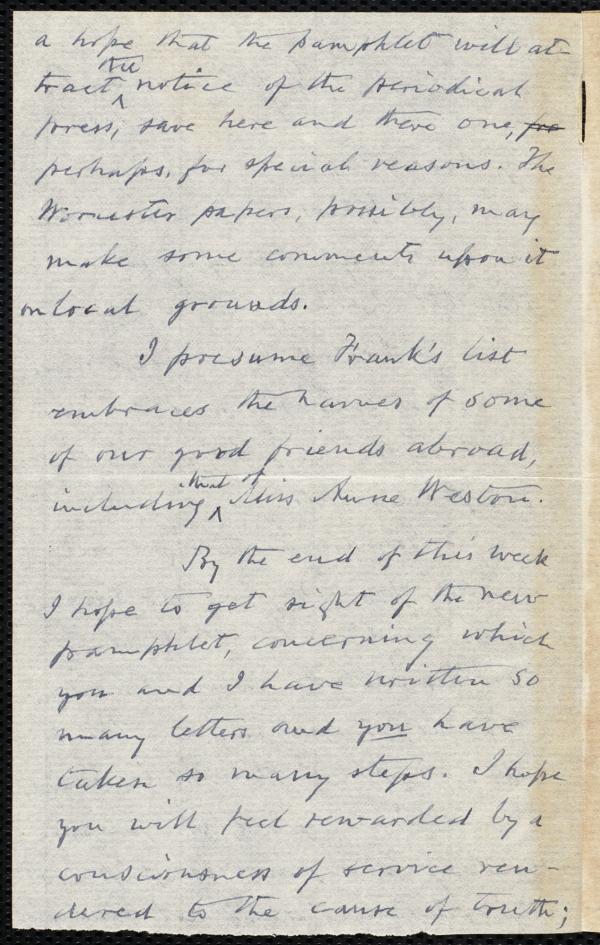 a hope that the pamphlet will at-
tract the notice of the periodical
press, save here and there one, for
perhaps, for special reasons. The
Worcester papers, possibly, may
make some comments upon it
on local grounds.
I presume Frank's list
embraces the names of some
of our good friends abroad,
including that of Miss Anne Weston.
By the end of this week
I hope to get sight of the new
pamphlet, concerning which
you and I have written so
many letters and you have
taken so many steps. I hope
you will feel rewarded by a
consciousness of service ren-
dered to the cause of truth;